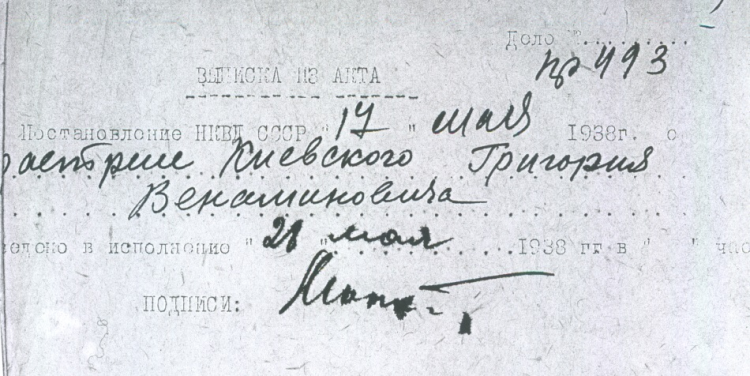 Дело №..........
пр 493
ВЫПИСКА ИЗ АКТА
Постановление НКВД СССР "17" мая 1938г. о
расстреле Киевского Григория
Венаминовича
ведено в исполнение "28" мая ........... 1938 гг в " " час
ПОДПИСИ: